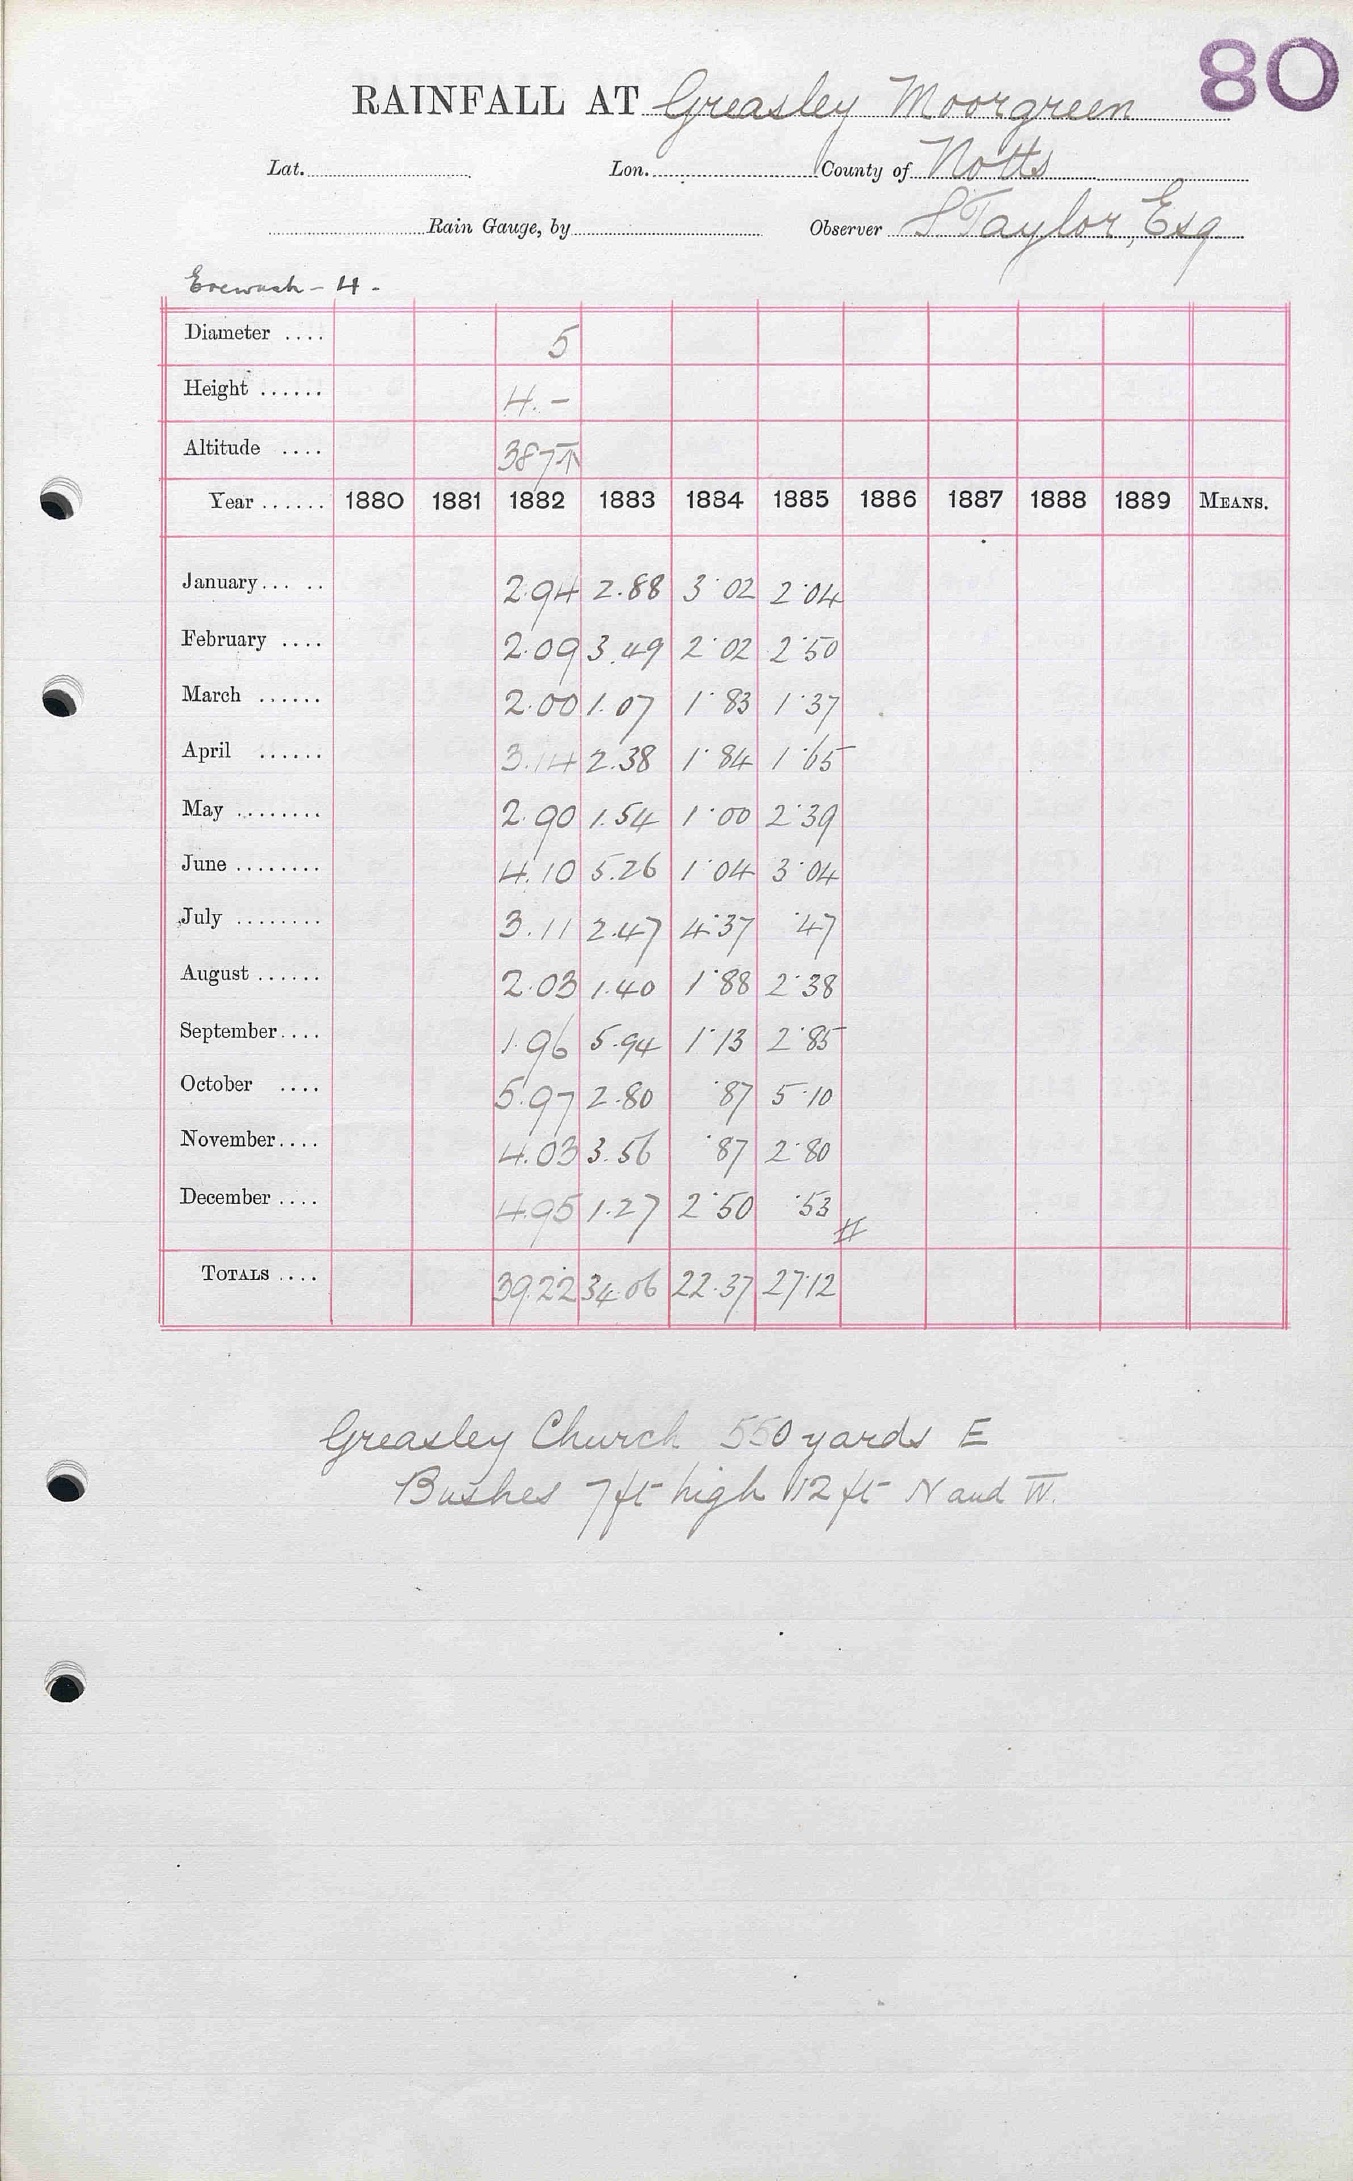 80
RAINFALL AT Greasley Moorgreen
Lat. Lon. County of Notts
Rain Gauge, by Observer S Taylor, Esq
Erewash - 4 -
Diameter .... 5
Height ...... 4. -
Altitude .... 387 T
Year ...... 1880 1881 1882 1883 1884 1885 1886 1887 1888 1889 MEANS.
January... .. 2.94 2.88 3·02 2·04
February .... 2.09 3.49 2·02 2·50
March ...... 2.00 1.07 1·83 1·37
April ...... 3.14 2.38 1·84 1·65
May ........ 2.90 1.54 1·00 2·39
June ........ 4.10 5.26 1·04 3·04
July ........ 3.11 2.47 4·37 ·47
August ...... 2.03 1.40 1·88 2·38
September.... 1.96 5.94 1·13 2·85
October .... 5.97 2.80 ·87 5·10
November.... 4.03 3.56 ·87 2·80
December .... 4.95 1.27 2·50 ·53
TOTALS .... 39.22 34.06 22.37 27·12
Greasley Church 550 yards E
Bushes 7 ft high 12 ft N and W.